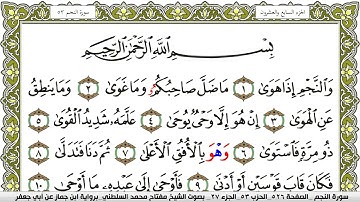 سورة النجم ٥٣
الجزء السابع والعشرون
بِسْمِ اللَّهِ الرَّحْمَٰنِ الرَّحِيمِ
وَالنَّجْمِ إِذَا هَوَىٰ ١ مَا ضَلَّ صَاحِبُكُمُ وَمَا غَوَىٰ ٢ وَمَا يَنطِقُ
عَنِ الْهَوَىٰ ٣ إِنْ هُوَ إِلَّا وَحْيٌ يُوحَىٰ ٤ عَلَّمَهُ شَدِيدُ الْقُوَىٰ ٥
ذُو مِرَّةٍ فَاسْتَوَىٰ ٦ وَهْوَ بِالْأُفُقِ الْأَعْلَىٰ ٧ ثُمَّ دَنَا فَتَدَلَّىٰ ٨
فَكَانَ قَابَ قَوْسَيْنِ أَوْ أَدْنَىٰ ٩ فَأَوْحَىٰ إِلَىٰ عَبْدِهِ مَا أَوْحَىٰ ١٠
سورة النجم الصفحة ٥٢٦ الحزب ٥٣ الجزء ٢٧ بصوت الشيخ مفتاح محمد السلطني برواية ابن جماز عن أبي جعفر